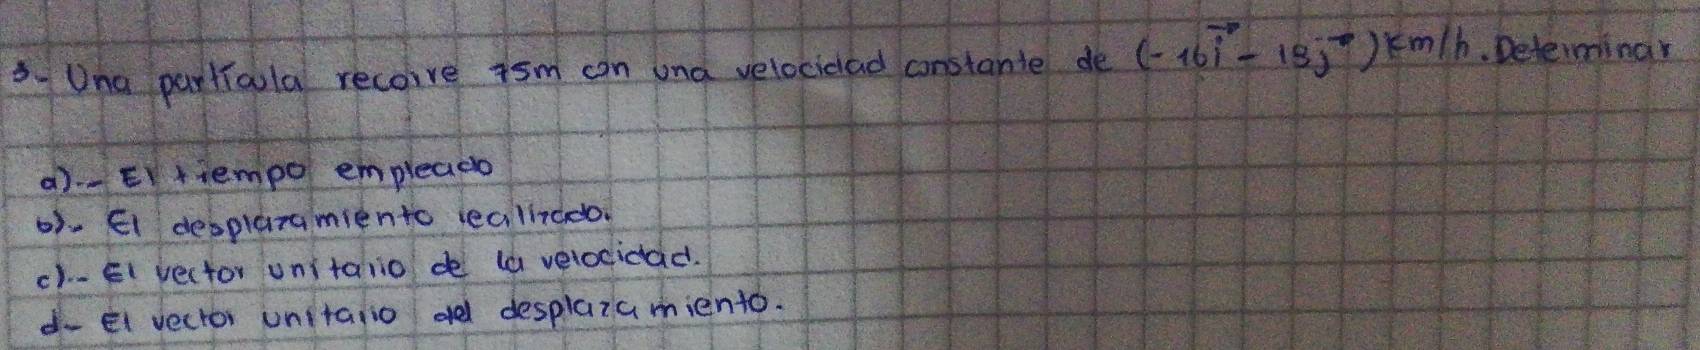 3.- Una partícula recorre 75m con una velocidad constante de (-16i⃗ - 18j⃗) Km/h. Determinar
a).- El tiempo empleado
b).- El desplazamiento realizado.
c).- El vector unitario de la velocidad.
d.- El vector unitario del desplazamiento.